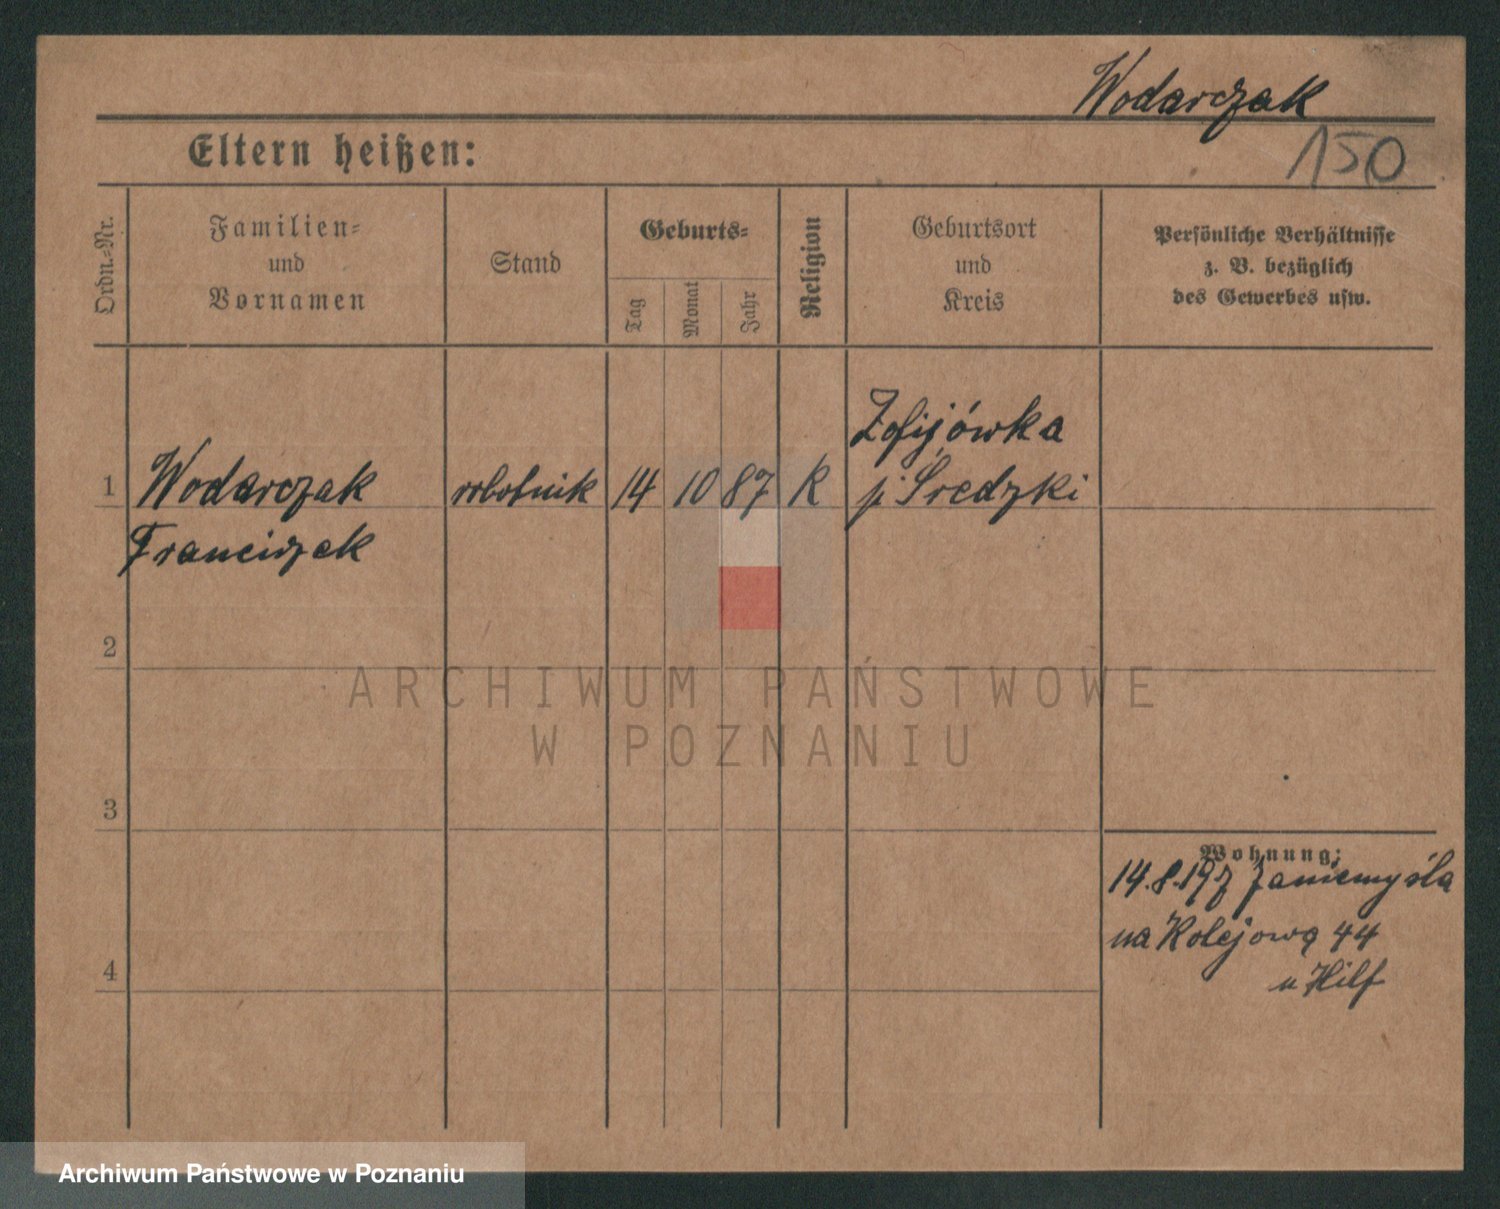 Wodarczak
150
Eltern heißen:
Ordn.-Nr.
Familien-
und
Vornamen
Stand
Geburts-
Tag
Monat
Jahr
Religion
Geburtsort
und
Kreis
Persönliche Verhältnisse
z. B. bezüglich
des Gewerbes usw.
1
Wodarczak
Franciszek
robotnik
14
10
87
R
Zofijówka
p. Średzki
2
3
4
Wohnung:
14.8.19 Zaniemyśla
na Kolejową 44
u Hilf
ARCHIWUM PAŃSTWOWE
W POZNANIU
Archiwum Państwowe w Poznaniu